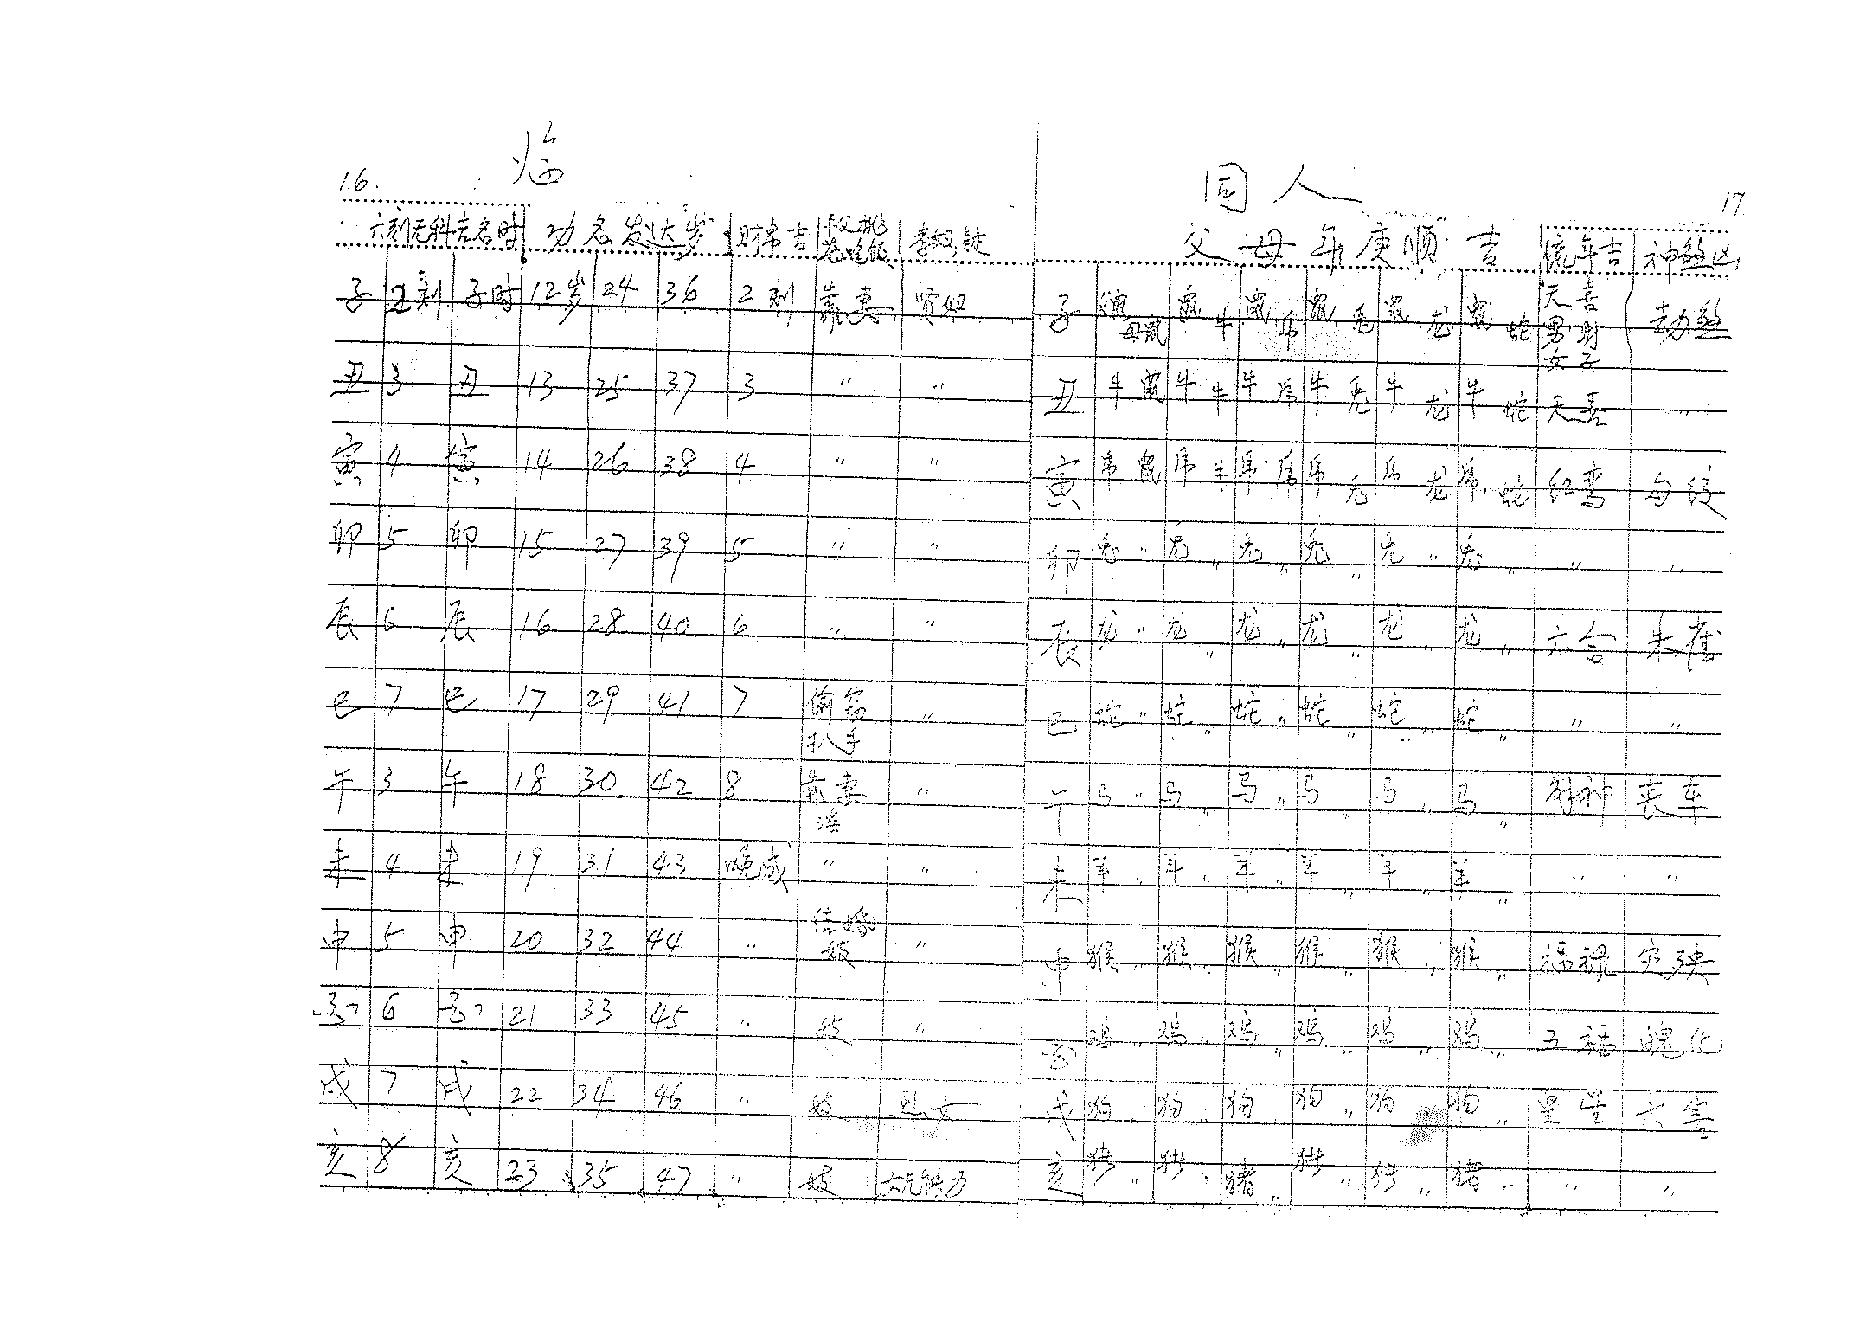 16.
临
功名发达岁 财帛吉
子 2刻 子时 12岁 24 36 2刻 靠妻
丑 3 丑 13 25 37 3 〃 〃
寅 4 寅 14 26 38 4 〃 〃
卯 5 卯 15 27 39 5 〃 〃
辰 6 辰 16 28 40 6 〃 〃
巳 7 巳 17 29 41 7 偷鸡扒手 〃
午 3 午 18 30 42 8 靠妻 〃
未 4 未 19 31 43 晚成 〃 〃
申 5 申 20 32 44 〃 〃
酉 6 酉 21 33 45 〃 妓 〃
戌 7 戌 22 34 46 〃 妓
亥 8 亥 23 35 47 〃 妓
17
同人
父母年庚顺吉 流年吉 神煞凶
子 母鼠 鼠牛 鼠虎 鼠兔 鼠龙 鼠蛇 天喜 男财 女子 劫煞
丑 牛鼠 牛牛 牛虎 牛兔 牛龙 牛蛇 天喜 〃
寅 虎鼠 虎牛 虎虎 虎兔 虎龙 虎蛇 红鸾 勾绞
卯 兔〃 兔〃 兔〃 兔〃 兔〃 兔〃 〃 〃
辰 龙〃 龙〃 龙〃 龙〃 龙〃 龙〃 六合 朱雀
巳 蛇〃 蛇〃 蛇〃 蛇〃 蛇〃 蛇〃 〃 〃
午 马〃 马〃 马〃 马〃 马〃 马〃 财神 丧车
未 羊〃 羊〃 羊〃 羊〃 羊〃 羊〃 〃 〃
申 猴〃 猴〃 猴〃 猴〃 猴〃 猴〃 福禄 灾殃
酉 鸡〃 鸡〃 鸡〃 鸡〃 鸡〃 鸡〃 五福
戌 狗〃 狗〃 狗〃 狗〃 狗〃 狗〃 六害
亥 猪〃 猪〃 猪〃 猪〃 猪〃 猪〃 〃 〃